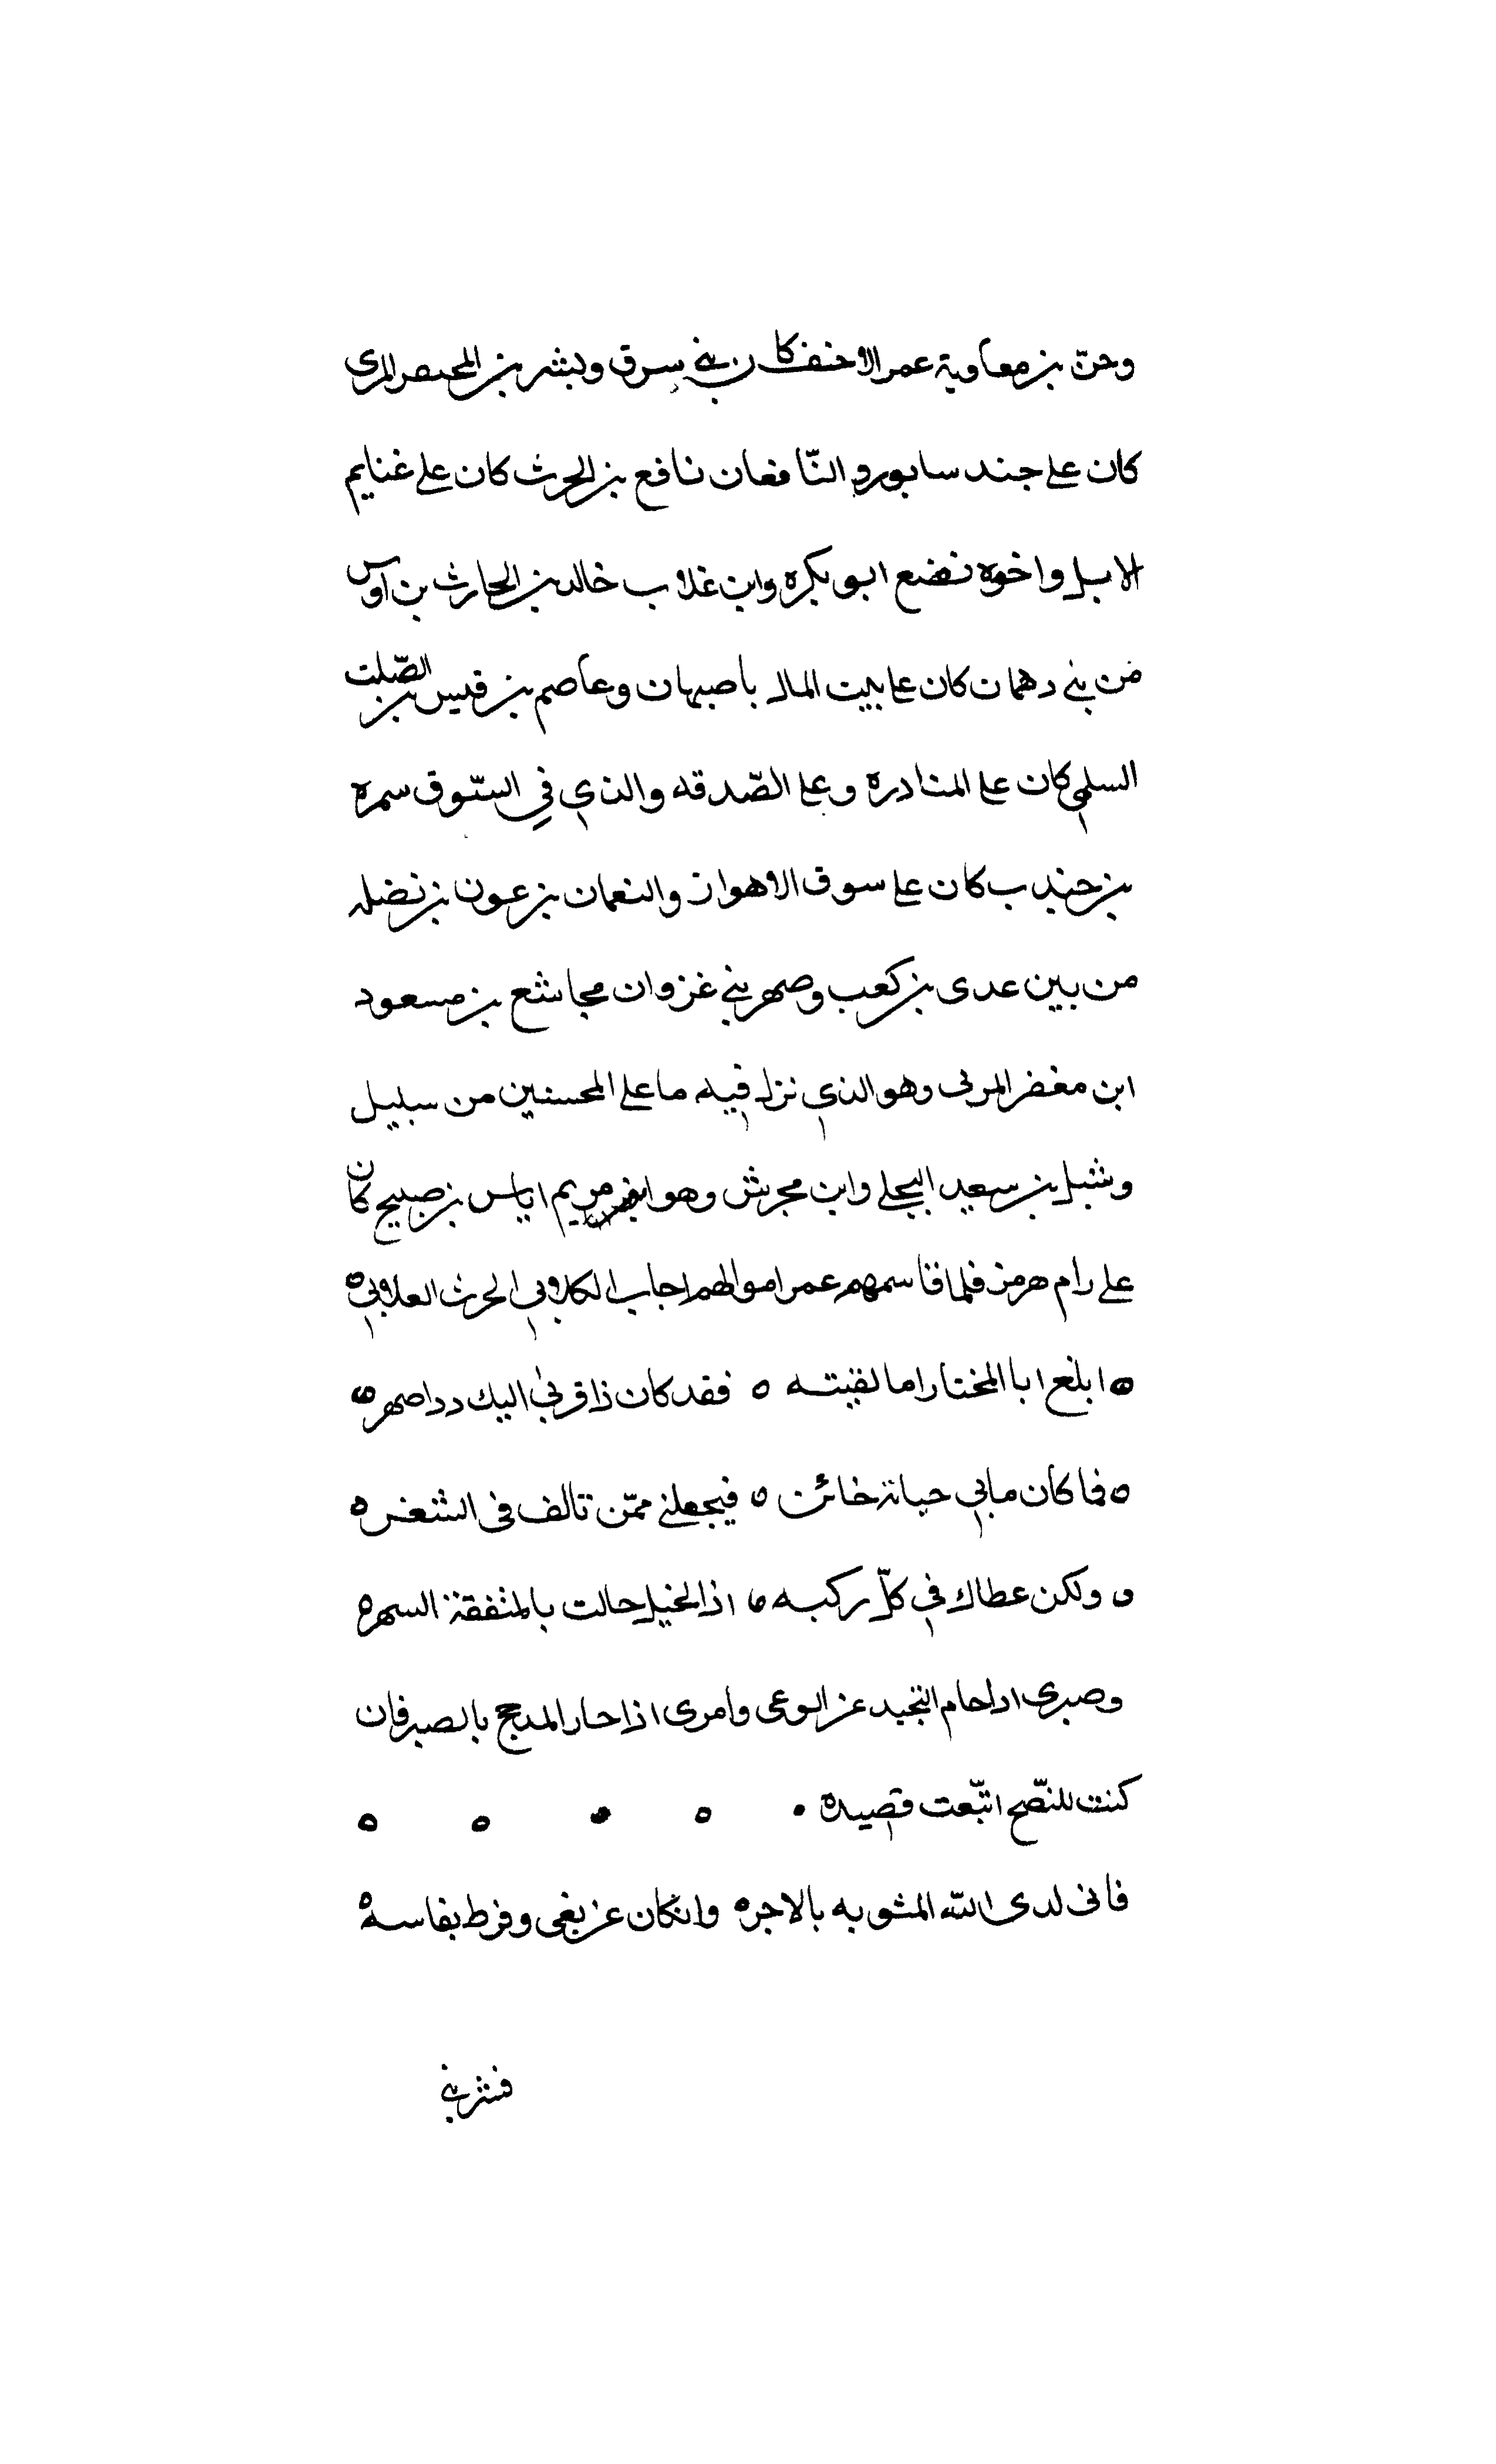 وحز بن معاوية عم الاحنف كان في سرق وبشر بن المحتفر المرى
كان على جند سابور والنّافعان نافع بن الحرث كان على غنايم
الابل واخوه نضع ابو بكره وابن غلاب خالد بن الحارث بن اوس
من بني دهمان كان على بيت المال باصبهان وعاصم بن قيس بن الصّلت
السلمي كان على المنادره وعلى الصّدقه والذي في السّوق سمره
بن جندب كان على سوق الاهواز والنعمان بن عون بن نضله
من بين عدى بن كعب وصهر بني غزوان مجاشع بن مسعود
ابن مغفر المربى وهو الذي نزل فيه ما على المحسنين من سبيل
وشبل بن سعيد البجلي وابن مجرش وهو ابو مريم اياس بن صبيح كان
على رام هرمز فلما قاسمهم عمر اموالهم اجاب الكلابي الحرث العلابي ه
ه ابلغ ابا المختار اما لقيته ه فقد كان ذا قربى اليك ددا صهر ه
ه فما كان مابي حيانة خائن ه فيجعلني ممّن تالف فى الشغر ه
ه ولكن عطاك في كلّ ركبه ه اذا الخيل حالت بالمثفقة السمر ه
وصبرى اداحام التجيد عن الوعى وامرى اذا حار المدجج بالصبر فان
كنت للنّصح اتّبعت قصيده ٠ ه ٠ ه ه
فانى لدى الله المشوبه بالاجره وانكان عن بغى وفرط بفاسة
فشربني